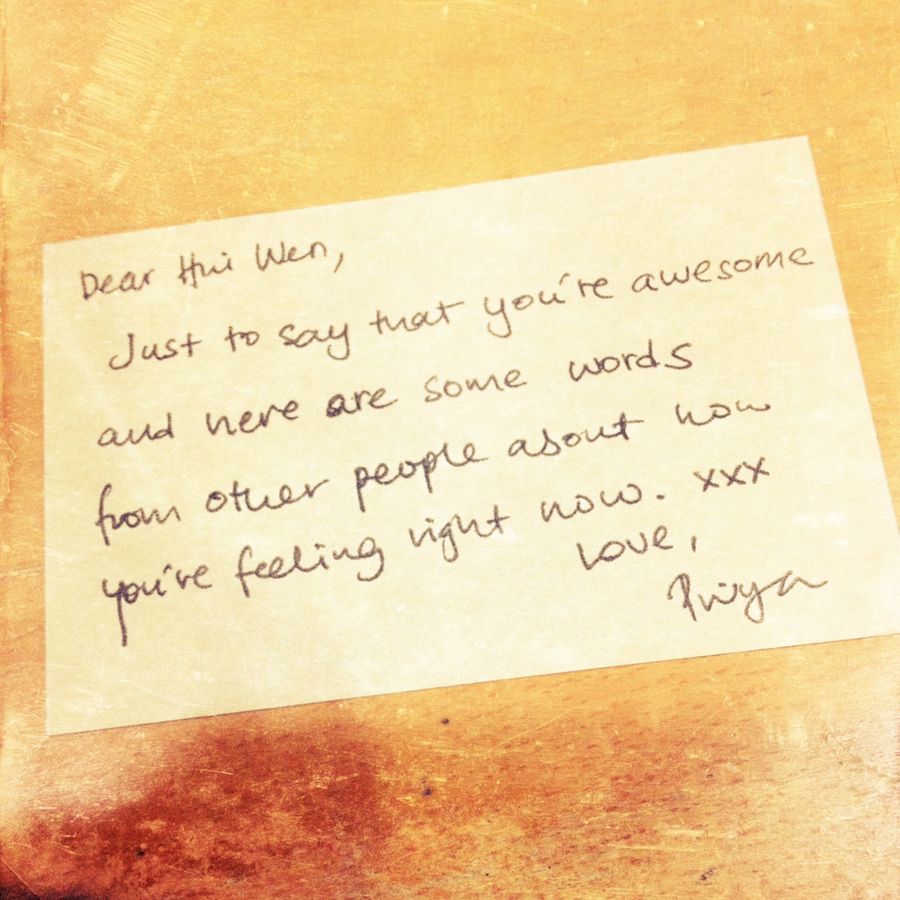 Dear Hui Wen,
Just to say that you're awesome
and here are some words
from other people about how
you're feeling right now. xxx
Love,
Priya